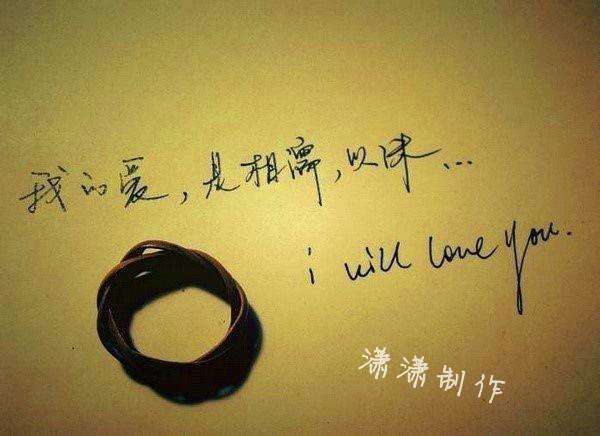 我的爱，是相濡，以沫...
i will love you.
潇潇制作